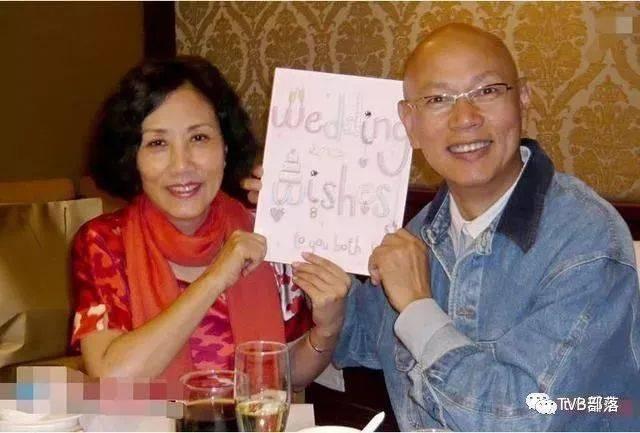 Wedding
Wishes
to you both
TVB部落